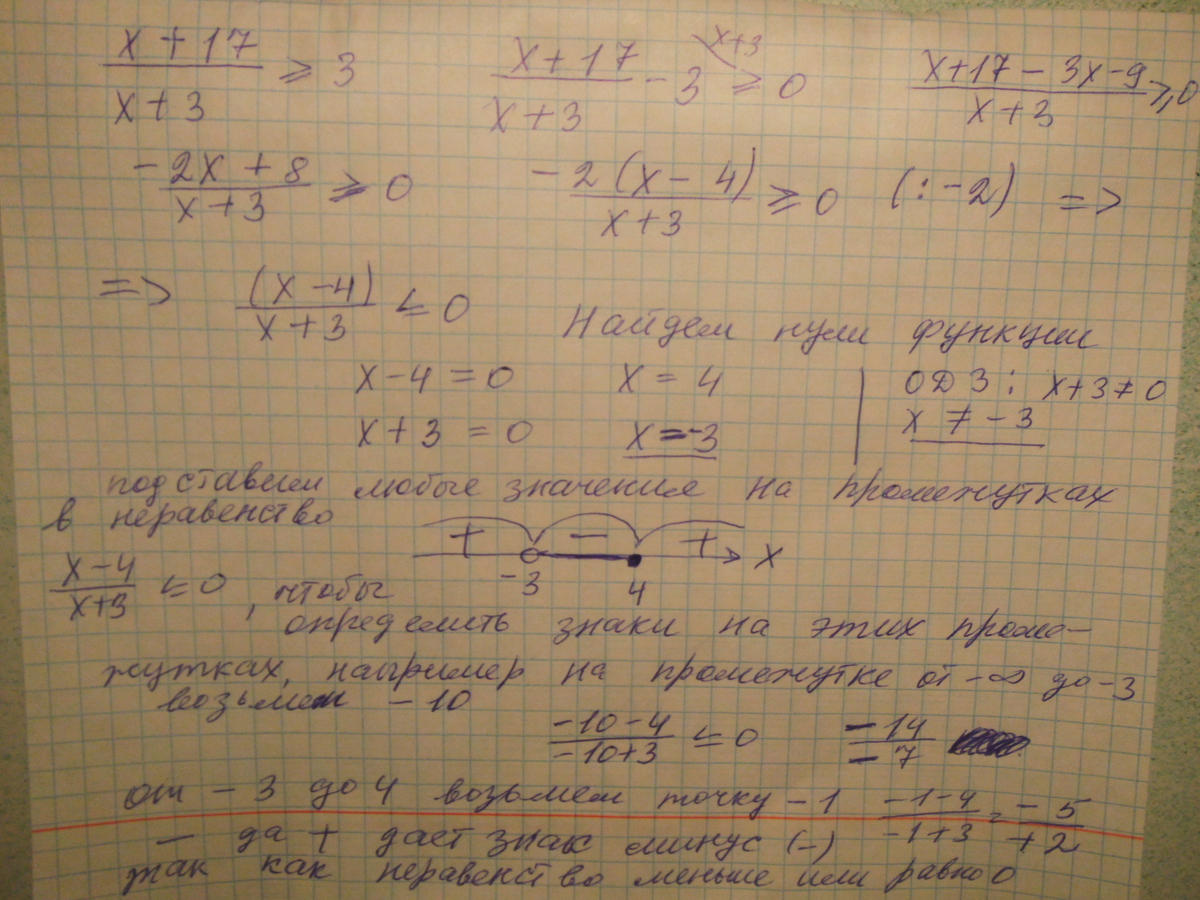 x + 17 / x + 3 ⩾ 3   x + 17 / x + 3 − 3 x+3 ⩾ 0   x+17 − 3x − 9 / x + 3 ⩾ 0
−2x + 8 / x + 3 ⩾ 0   −2 (x − 4) / x + 3 ⩾ 0   (: −2) =>
=> (x − 4) / x + 3 ≤ 0   Найдем нули функции
x − 4 = 0   x = 4   ОДЗ : x + 3 ≠ 0
x + 3 = 0   x = −3   x ≠ −3
подставим любые значения на промежутках
в неравенство
+ − + x
−3 4
x − 4 / x+3 ≤ 0 , чтобы
определить знаки на этих проме-
жутках, например на промежутке от −∞ до −3
возьмем −10
−10 − 4 / −10+3 ≤ 0   −14 / −7
от −3 до 4 возьмем точку −1   −1−4 / −1+3 = −5 / +2
− да + дает знак минус (−)
так как неравенство меньше или равно 0